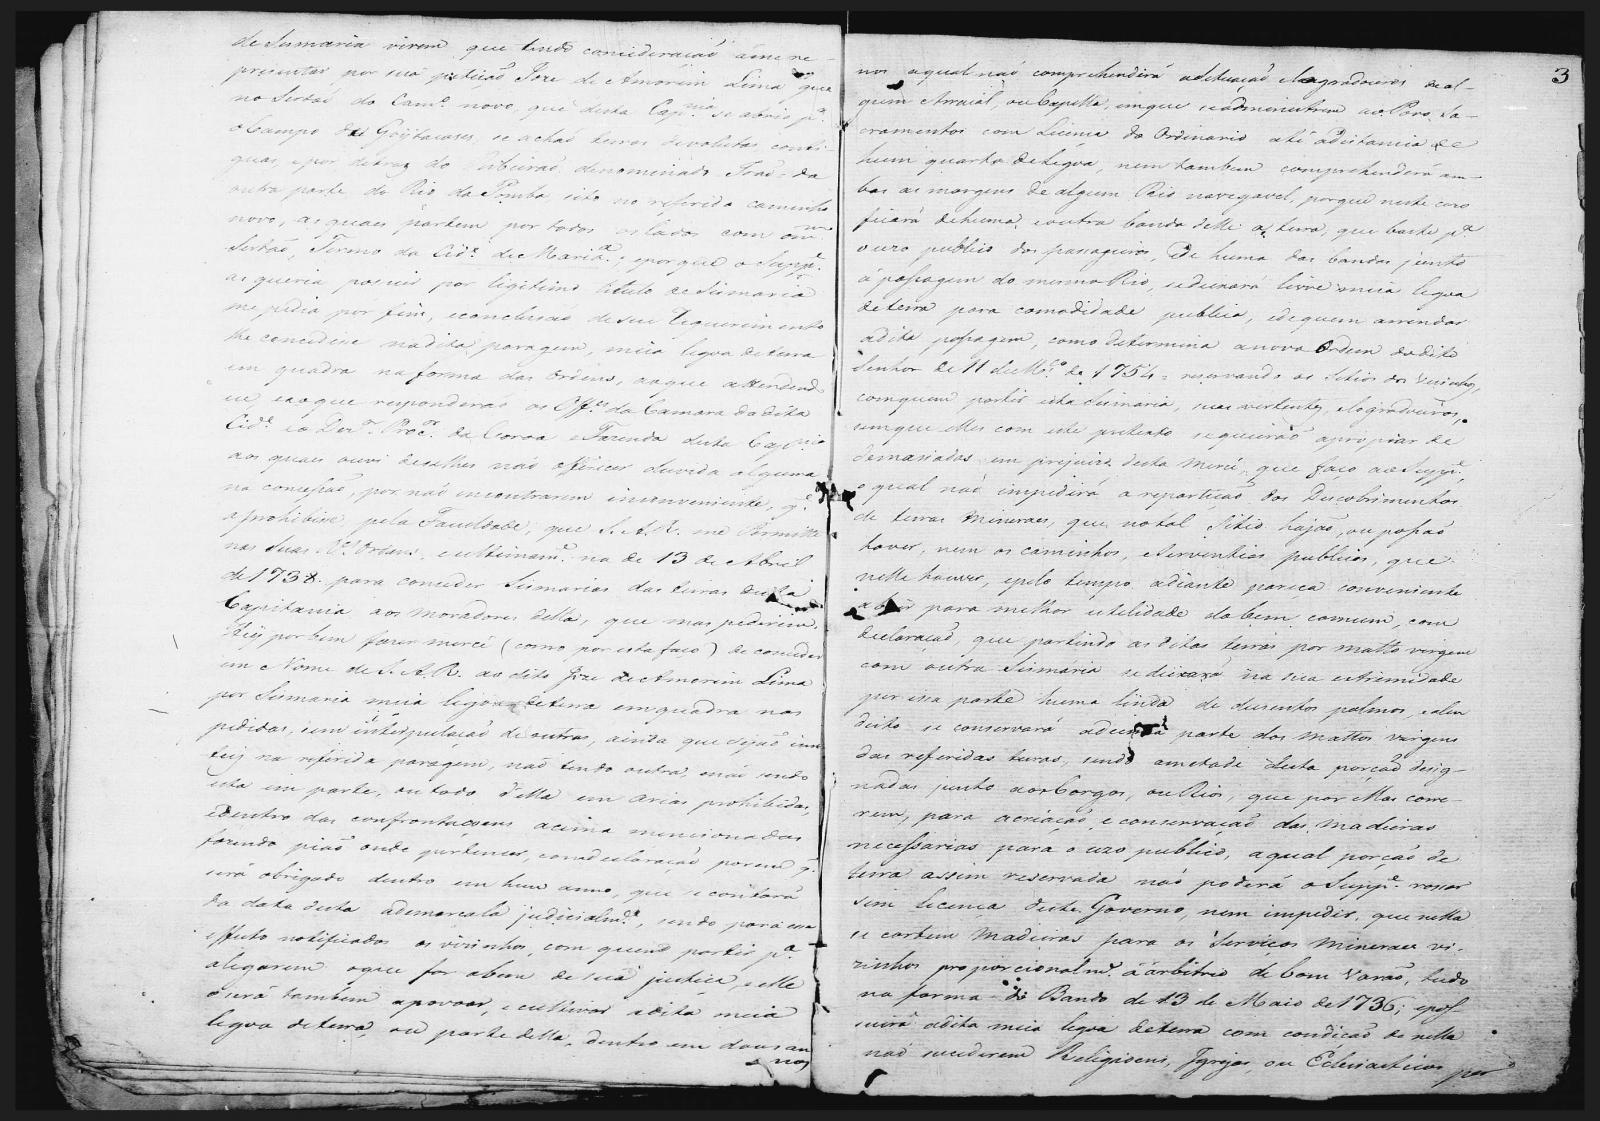 de Sismaria virem que tendo consideraçaõ áme re-
prezentar por sua petiçaõ Joze de Amorim Lima que
no Sertaõ do Cam.º novo, que desta Cap.nia se abrio p.ª
o Campo dos Goÿtacazes, se achaõ terras devolutas conti-
guas, e por detraz do Ribeiraõ denominado da
outra parte do Rio da Pomba sito no referido caminho
novo, as quaes partem por todos os lados com o mesmo
Sertaõ, Termo da Cid.e de Marian.ª; e porque o Supp.e
as queria possuir por legitimo titulo de Sismaria
me pedia por fim, e concluzaõ de seu requerimento
lhe concedese na dita paragem, meia legoa de terra
em quadra na forma das Ordens, ao que attendendo
eu, e ao que responderaõ os Off.es da Camara da dita
Cid.e e o Dez.or Proc.or da Coroa e Fazenda desta Cap.nia
aos quaes ouvi de selhes naõ offerecer duvida alguma
na concessaõ, por naõ encontrarem inconveniente, q.e
a prohibise, pela Faculdade, que S. A. R. me Permitte
nas suas R.es Ordens, e ultimam.e na de 13 de Abril
de 1738. para conceder Sismarias das terras desta
Capitania aos moradores della, que mas pedirem.
Hey por bem fazer mercê (como por esta faço) de conceder
em Nome de S. A. R. ao dito Joze de Amorim Lima
por Sismaria meia legoa de terra em quadra nas
pedidas, sem interpulaçaõ de outras, ainda que sejaõ inu-
teis na referida paragem, naõ tendo outra, e naõ sendo
esta em parte, ou todo della em arias prohibidas,
e dentro das confrontaçoens acima mencionadas
fazendo piaõ onde pertencer, com declaraçaõ porem q.e
será obrigado dentro em hum anno, que se contará
da data desta a demarcala judicialm.e, sendo para esse
effeito notificados os vizinhos, com quem partir p.ª
alegarem o que for a bem de sua justiça, e elle
o será tambem a povoar, e cultivar a dita meia
legoa de terra, ou parte della, dentro em dous an
nos
3
nos a qual naõ comprehenderá a situaçaõ e logradouros de al-
gum Arraial, ou Capella, em que se administrem ao Povo Sa-
cramentos com Licença do Ordinario até a distancia de
hum quarto de Legoa, nem tambem comprehenderá am-
bas as margens de algum Rio navegavel, porque neste cazo
ficará de huma, e outra banda delle a terra, que baste p.ª
o uzo publico dos passageiros, De huma das bandas junto
á passagem do mesmo Rio, se deixará livre meia legoa
de terra para comodidade publica, e de quem arrendar
a dita passagem, como determina a nova Ordem do dito
Senhor de 11 de M.ço de 1754 = reservando os Sitios dos Vezinhos,
com quem partir esta Sismaria, suas vertentes, e logradouros,
sem que elles com este pretexto se queiraõ apropriar de
demaziadas em prejuizo desta Mercê, que faço ao Supp.e,
o qual naõ impedirá a repartiçaõ dos Descobrimentos
de terras Mineraes, que no tal Sitio hajaõ, ou possaõ
haver, nem os caminhos, e Serventias publicas, que
nelle houver, e pelo tempo adiante pareça conveniente
abrir para melhor utilidade do bem comum, com
declaraçaõ, que partindo as ditas terras por matto virgem
com outra Sismaria se deixará na sua extrimidade
por essa parte huma linda de duzentos palmos, e alem
disto se conservará a decima parte dos mattos virgens
das referidas terras, sendo ametade desta porçaõ desig-
nadas junto aos Corgos, ou Rios, que por ellas corre-
rem, para a criaçaõ, e conservaçaõ das madeiras
necessarias para o uzo publico, a qual porçaõ de
terra assim reservada naõ poderá o Supp.e rossar
sem licença deste Governo, nem impedir, que nella
se cortem madeiras para os Serviços mineraes vi-
zinhos proporcionalm.e a arbitrio de bom Varaõ, tudo
na forma do Bando de 13 de Maio de 1736; e pos-
suirá a dita meia legoa de terra com condiçaõ de nella
naõ sucederem Religioens, Igrejas, ou Eclesiasticos
por